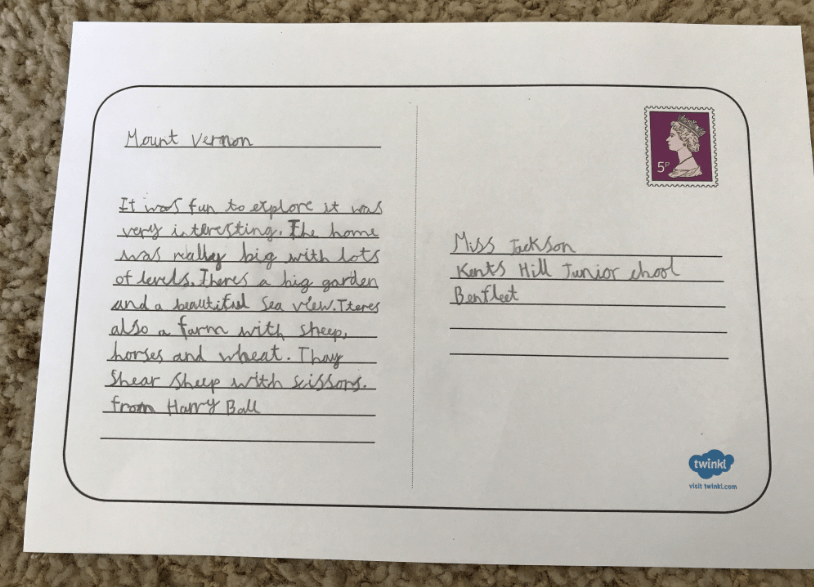 Mount Vernon
It was fun to explore it was
very interesting. The home
was really big with lots
of levels. Theres a big garden
and a beautiful sea view. Theres
also a farm with sheep,
horses and wheat. Thay
Shear sheep with scissors.
from Harry Ball
5P
Miss Jackson
Kents Hill Junior chool
Benfleet
twinkl
visit twinkl.com